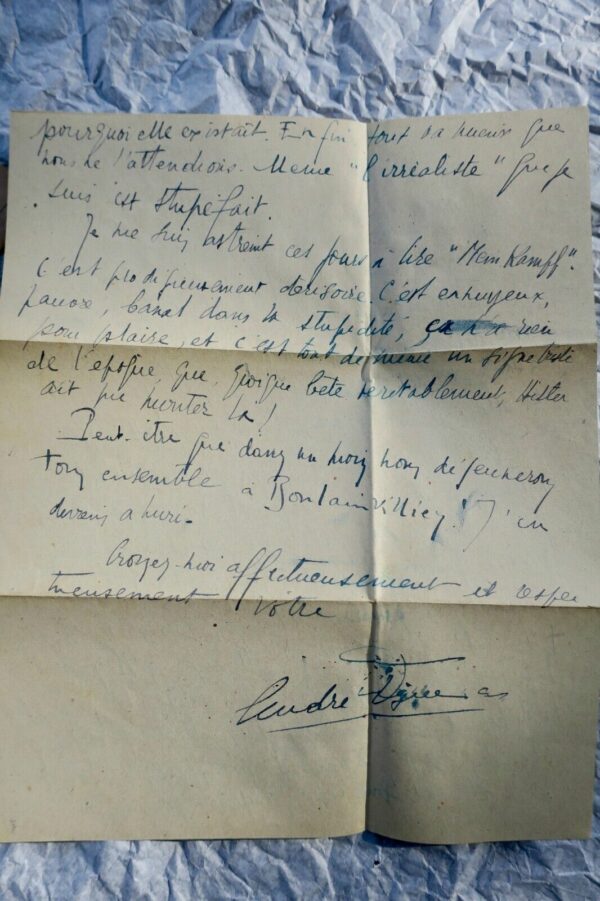 pourquoi elle existait. Enfin tout va mieux que
nous ne l'attendions. Meme "l'irréaliste" que je
suis est stupéfait.
Je me suis astreint ces jours à lire "Mein Kampf".
C'est prodigieusement dérisoire. C'est ennuyeux,
pauvre, banal dans la stupidité, ça n'a rien
pour plaire, et c'est tout de meme un signe
de l'époque que, quoique bête véritablement, Hitler
ait pu
Peut-être que dans un mois nous déjeunerons
tous ensemble à Boulainvilliers! J'en
deviens ahuri.
Croyez-moi affectueusement et respec
tueusement vôtre
André